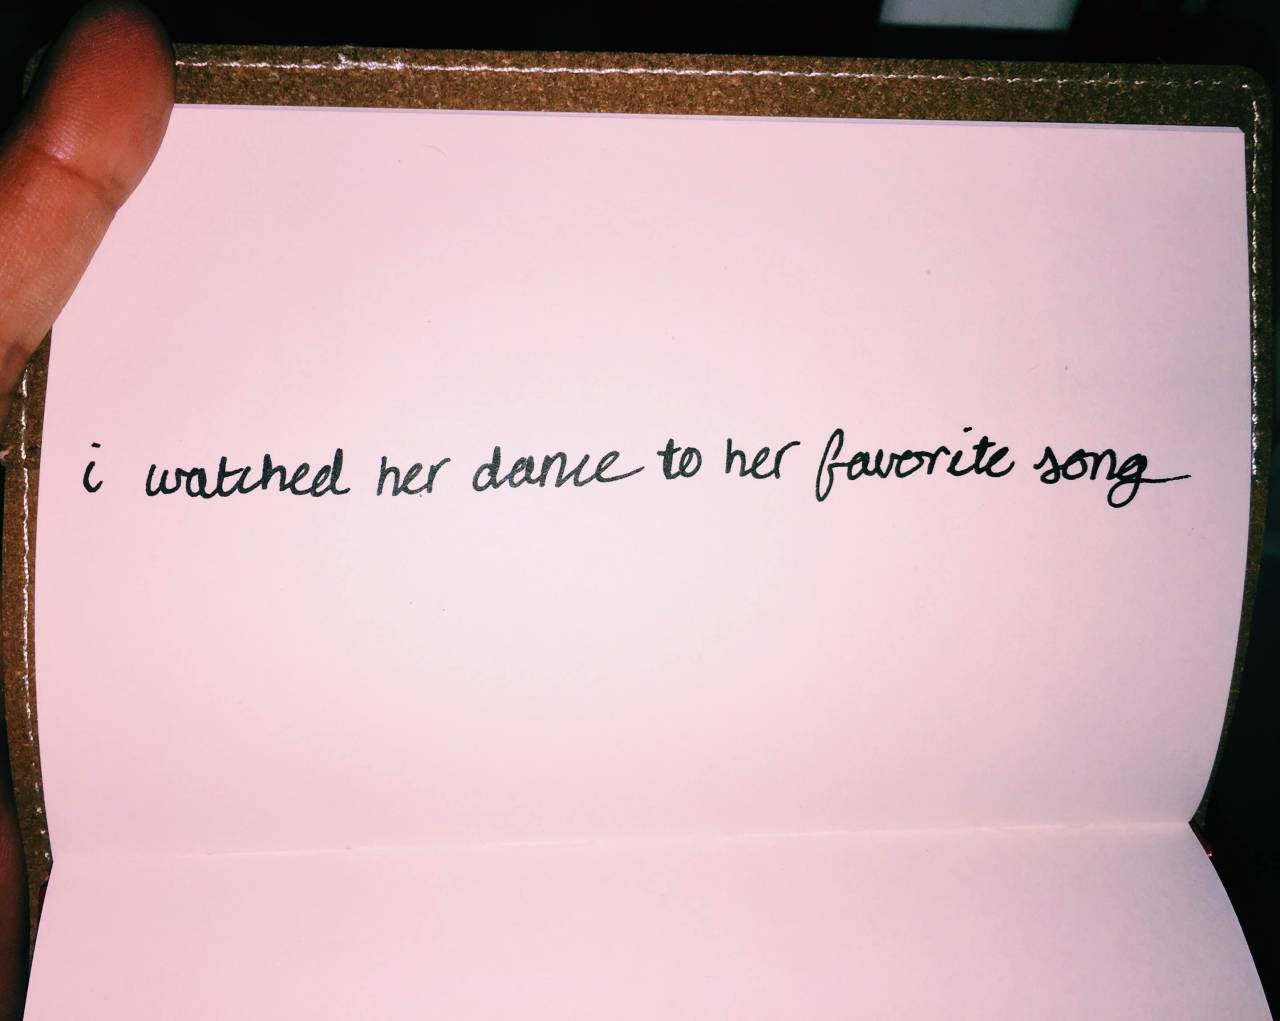 i watched her dance to her favorite song